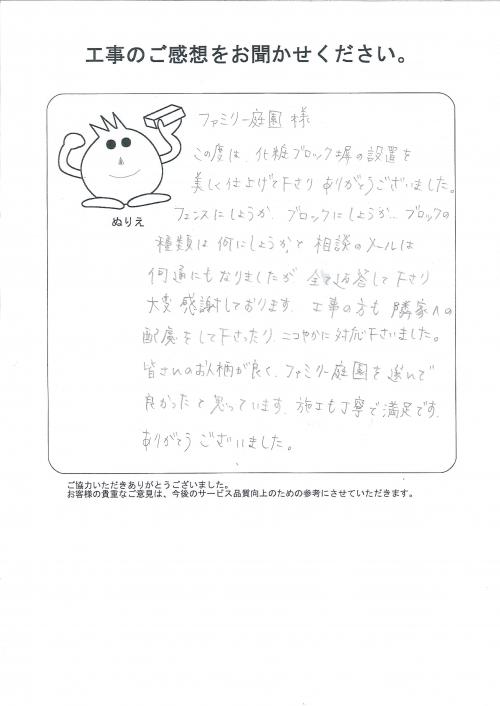 工事のご感想をお聞かせください。
ファミリー庭園 様
この度は、化粧ブロック塀の設置を
美しく仕上げて下さり ありがとうございました。
フェンスにしようか、ブロックにしようか… ブロックの
種類は 何にしようか、と 相談のメールは
何通にもなりましたが 全て返答して下さり
大変 感謝しております。 工事の方も 隣家への
配慮をして下さったり、ニコやかに対応下さいました。
皆さんのお人柄が良く、ファミリー庭園を選んで
良かったと思っています。施工も丁寧で満足です。
ありがとうございました。
ぬりえ
ご協力いただきありがとうございました。
お客様の貴重なご意見は、今後のサービス品質向上のための参考にさせていただきます。